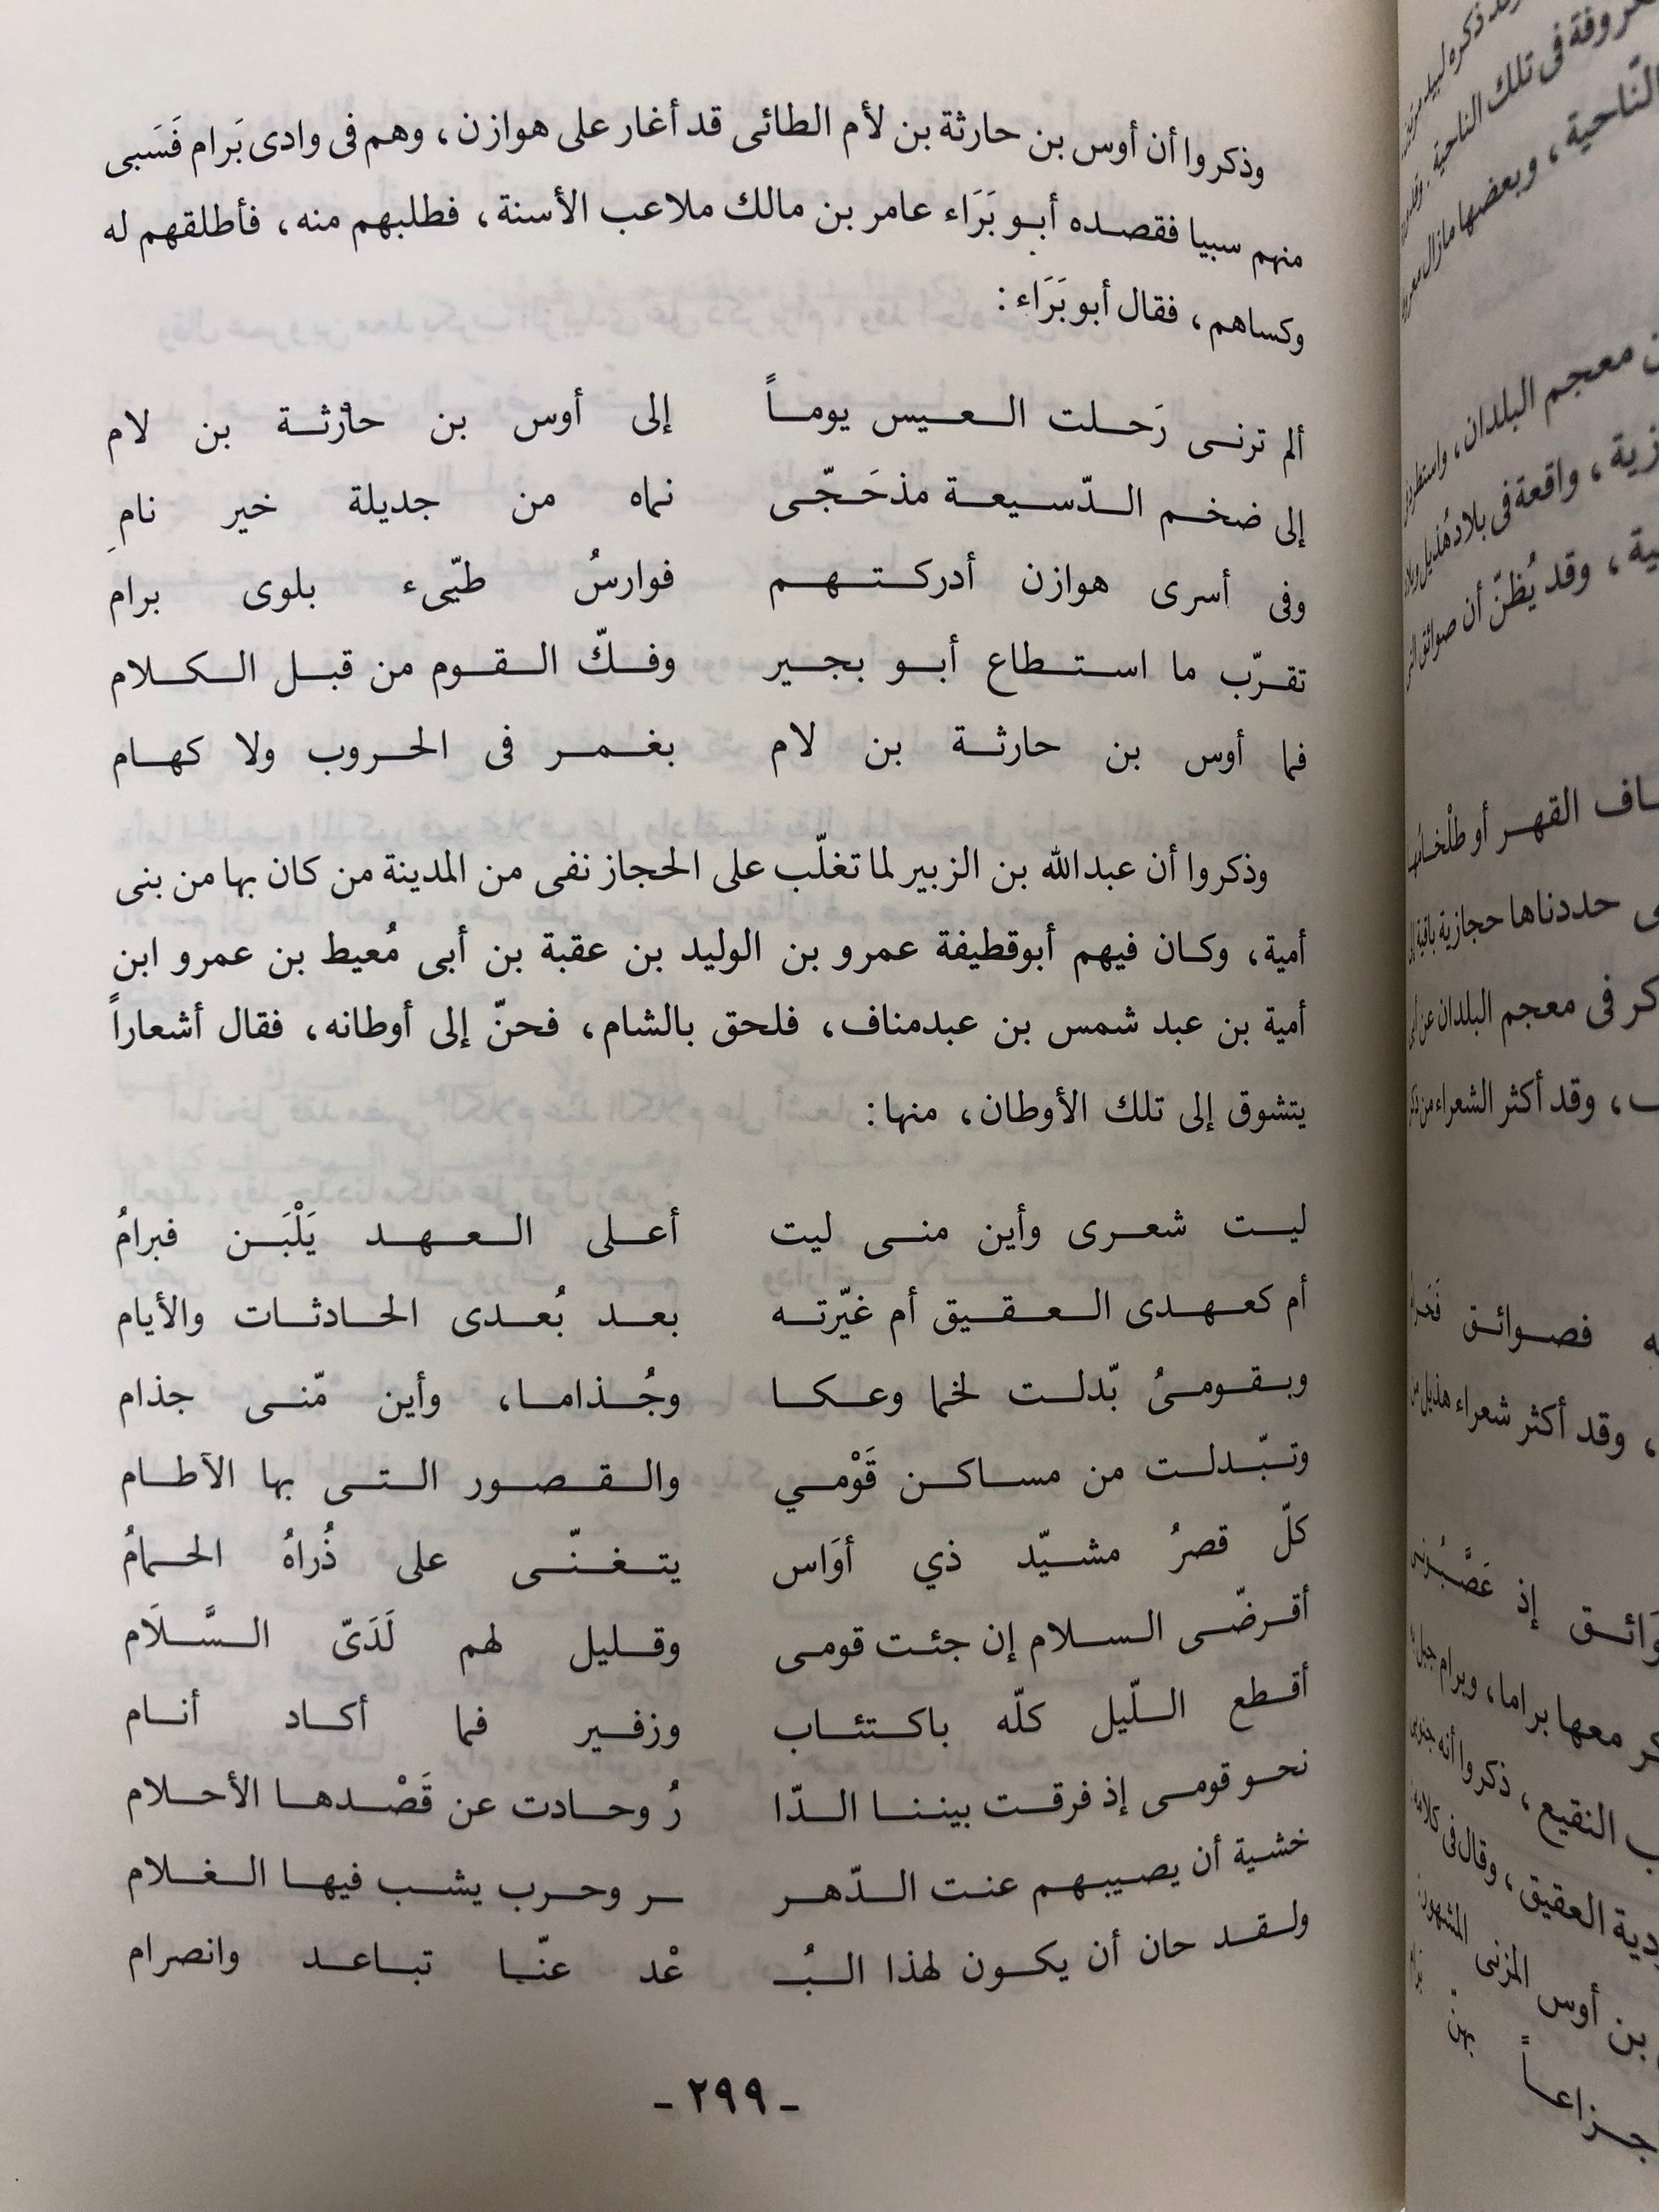 وذكروا أن أوس بن حارثة بن لأم الطائى قد أغار على هوازن، وهم فى وادى بَرام فَسَبى
منهم سبيا فقصده أبو بَرَاء عامر بن مالك ملاعب الأسنة، فطلبهم منه، فأطلقهم له
وكساهم، فقال أبو بَرَاء:
ألم ترنى رَحلت العيس يوماً إلى أوس بن حارثة بن لام
إلى ضخم الدّسيعة مذحَجّى نماه من جديلة خير نامِ
وفى أسرى هوازن أدركتهم فوارسُ طيّىء بلوى برام
تقرّب ما استطاع أبو بجير وفكّ القوم من قبل الكلام
فما أوس بن حارثة بن لام بغمر فى الحروب ولا كهام
وذكروا أن عبدالله بن الزبير لما تغلّب على الحجاز نفى من المدينة من كان بها من بنى
أمية، وكان فيهم أبوقطيفة عمرو بن الوليد بن عقبة بن أبى مُعيط بن عمرو ابن
أمية بن عبد شمس بن عبدمناف، فلحق بالشام، فحنّ إلى أوطانه، فقال أشعاراً
يتشوق إلى تلك الأوطان، منها:
ليت شعرى وأين منى ليت أعلى العهد يَلْبَن فبرامُ
أم كعهدى العقيق أم غيّرته بعد بُعدى الحادثات والأيام
وبقومىُ بّدلت لخما وعكا وجُذاما، وأين مّنى جذام
وتبّدلت من مساكن قَوْمي والقصور التى بها الآطام
كلّ قصرُ مشيّد ذي أوَاس يتغنّى على ذُراهُ الحمامُ
أقرضّى السلام إن جئت قومى وقليل لهم لَدَىّ السَّلَام
أقطع اللّيل كلّه باكتئاب وزفير فما أكاد أنام
نحو قومى إذ فرقت بيننا الدّا رُ وحادت عن قَصْدها الأحلام
خشية أن يصيبهم عنت الدّهر ـر وحرب يشب فيها الغلام
ولقد حان أن يكون لهذا البُـ عْد عنّا تباعد وانصرام
- ٢٩٩ -
ن معجم البلدان،
زية، واقعة فى بلاد هُذيل
ية، وقد يُظنّ أن صوائق